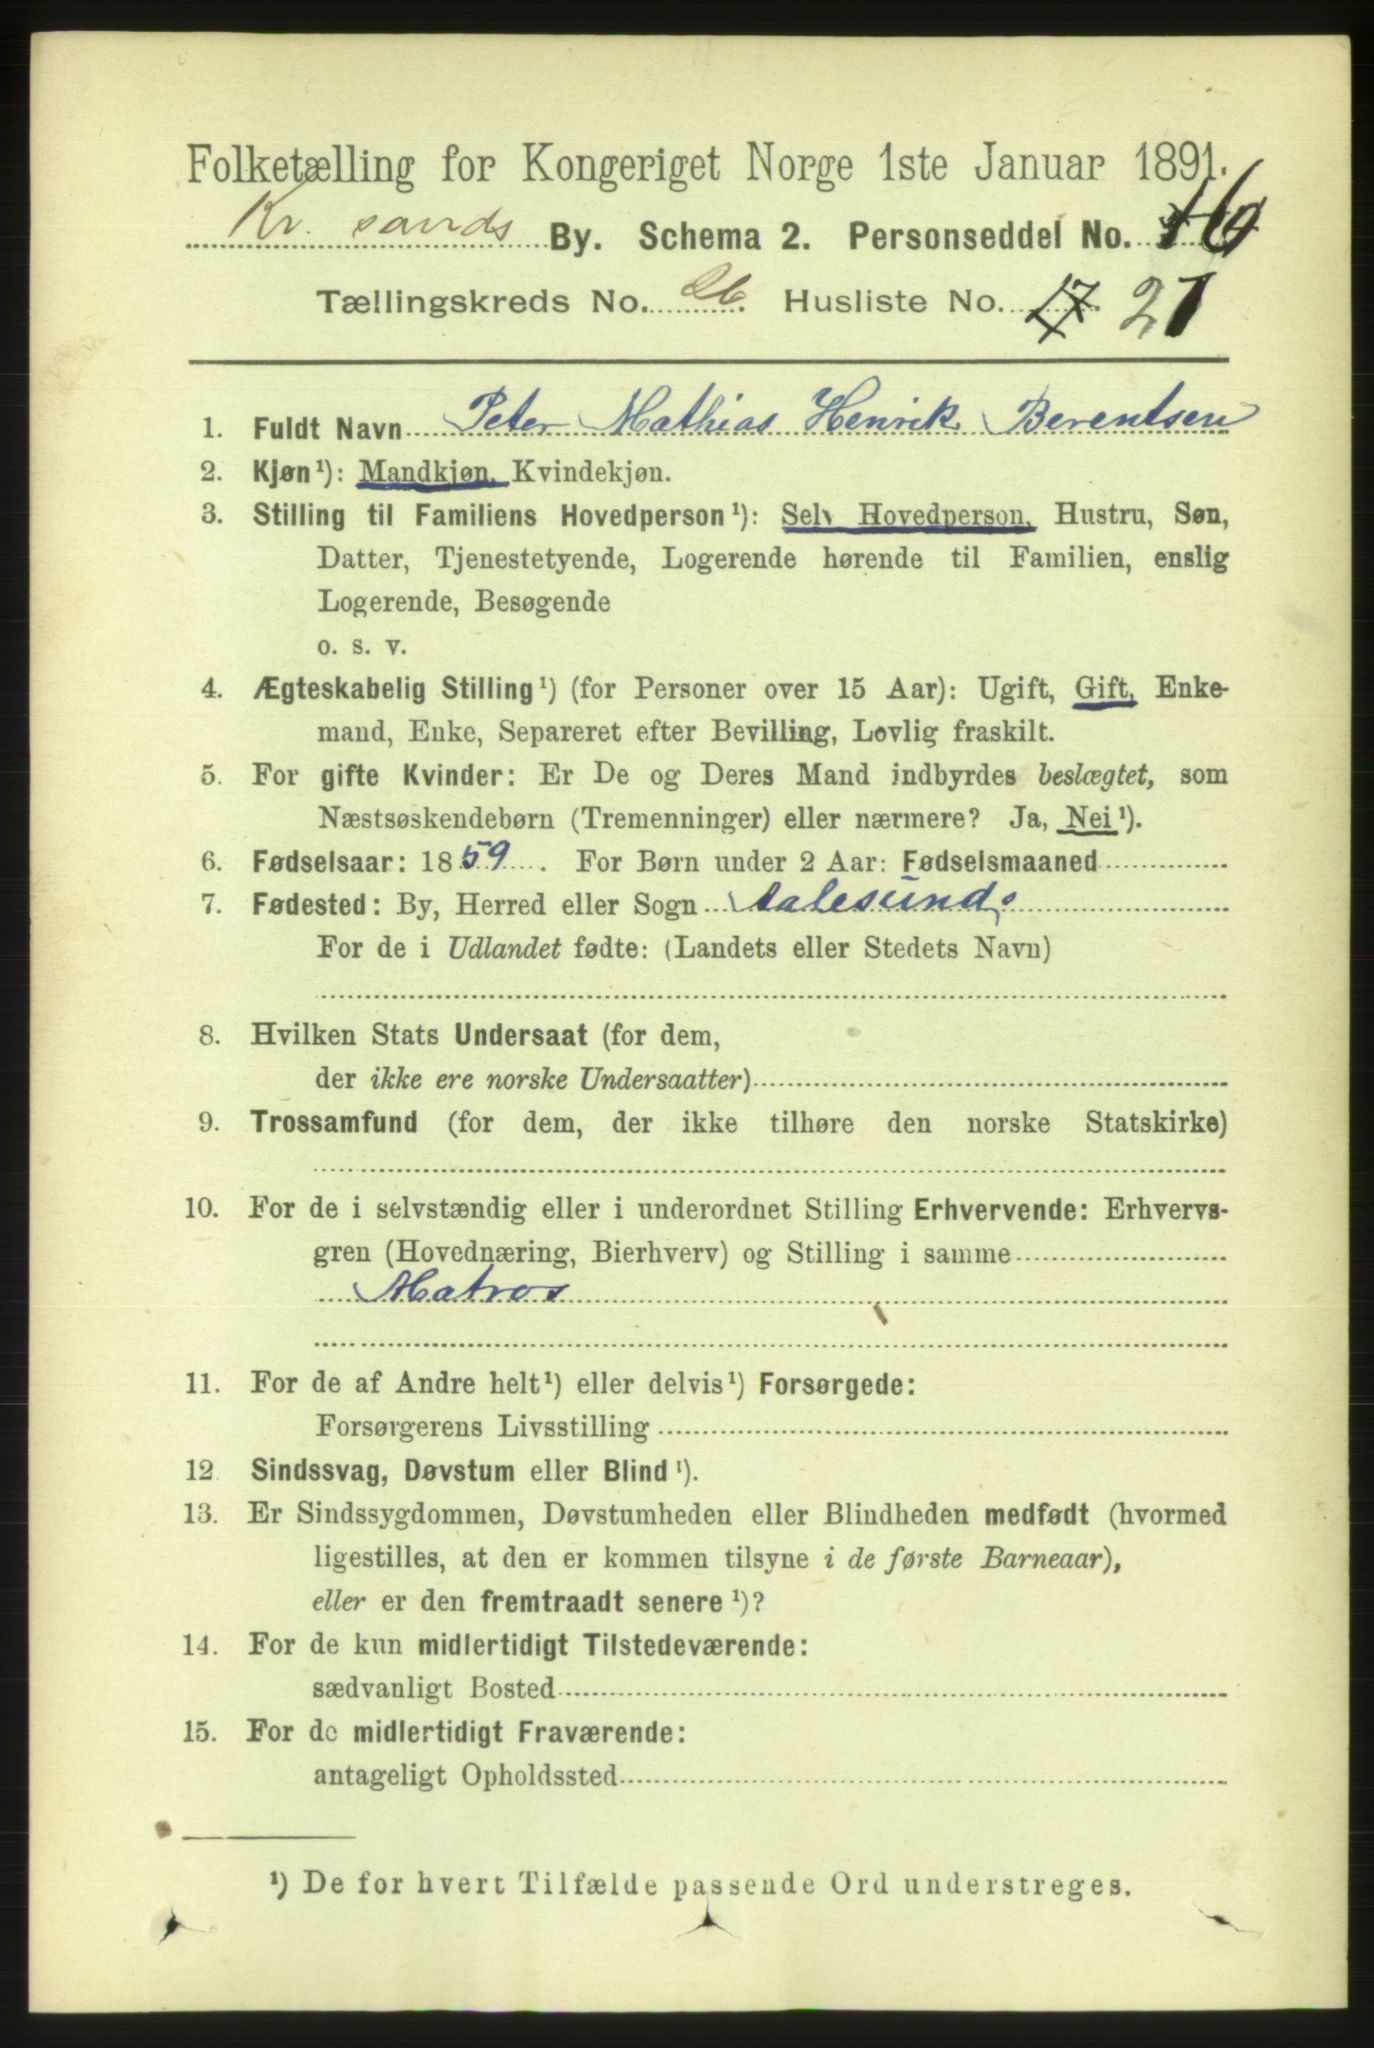 Folketælling for Kongeriget Norge 1ste Januar 1891.
Kr. sands By. Schema 2. Personseddel No. 16
Tællingskreds No. 26. Husliste No. 17 21
1. Fuldt Navn Peter Mathias Henrik Berentsen
2. Kjøn¹): Mandkjøn, Kvindekjøn.
3. Stilling til Familiens Hovedperson¹): Selv Hovedperson, Hustru, Søn,
Datter, Tjenestetyende, Logerende hørende til Familien, enslig
Logerende, Besøgende
o. s. v.
4. Ægteskabelig Stilling¹) (for Personer over 15 Aar): Ugift, Gift, Enke-
mand, Enke, Separeret efter Bevilling, Lovlig fraskilt.
5. For gifte Kvinder: Er De og Deres Mand indbyrdes beslægtet, som
Næstsøskendebørn (Tremenninger) eller nærmere? Ja, Nei¹).
6. Fødselsaar: 1859. For Børn under 2 Aar: Fødselsmaaned
7. Fødested: By, Herred eller Sogn Aalesund
For de i Udlandet fødte: (Landets eller Stedets Navn)
8. Hvilken Stats Undersaat (for dem,
der ikke ere norske Undersaatter)
9. Trossamfund (for dem, der ikke tilhøre den norske Statskirke)
10. For de i selvstændig eller i underordnet Stilling Erhvervende: Erhvervs-
gren (Hovednæring, Bierhverv) og Stilling i samme
Matros
11. For de af Andre helt¹) eller delvis¹) Forsørgede:
Forsørgerens Livsstilling
12 Sindssvag, Døvstum eller Blind¹).
13. Er Sindssygdommen, Døvstumheden eller Blindheden medfødt (hvormed
ligestilles, at den er kommen tilsyne i de første Barneaar),
eller er den fremtraadt senere¹)?
14. For de kun midlertidigt Tilstedeværende:
sædvanligt Bosted
15. For de midlertidigt Fraværende:
antageligt Opholdssted
¹) De for hvert Tilfælde passende Ord understreges.